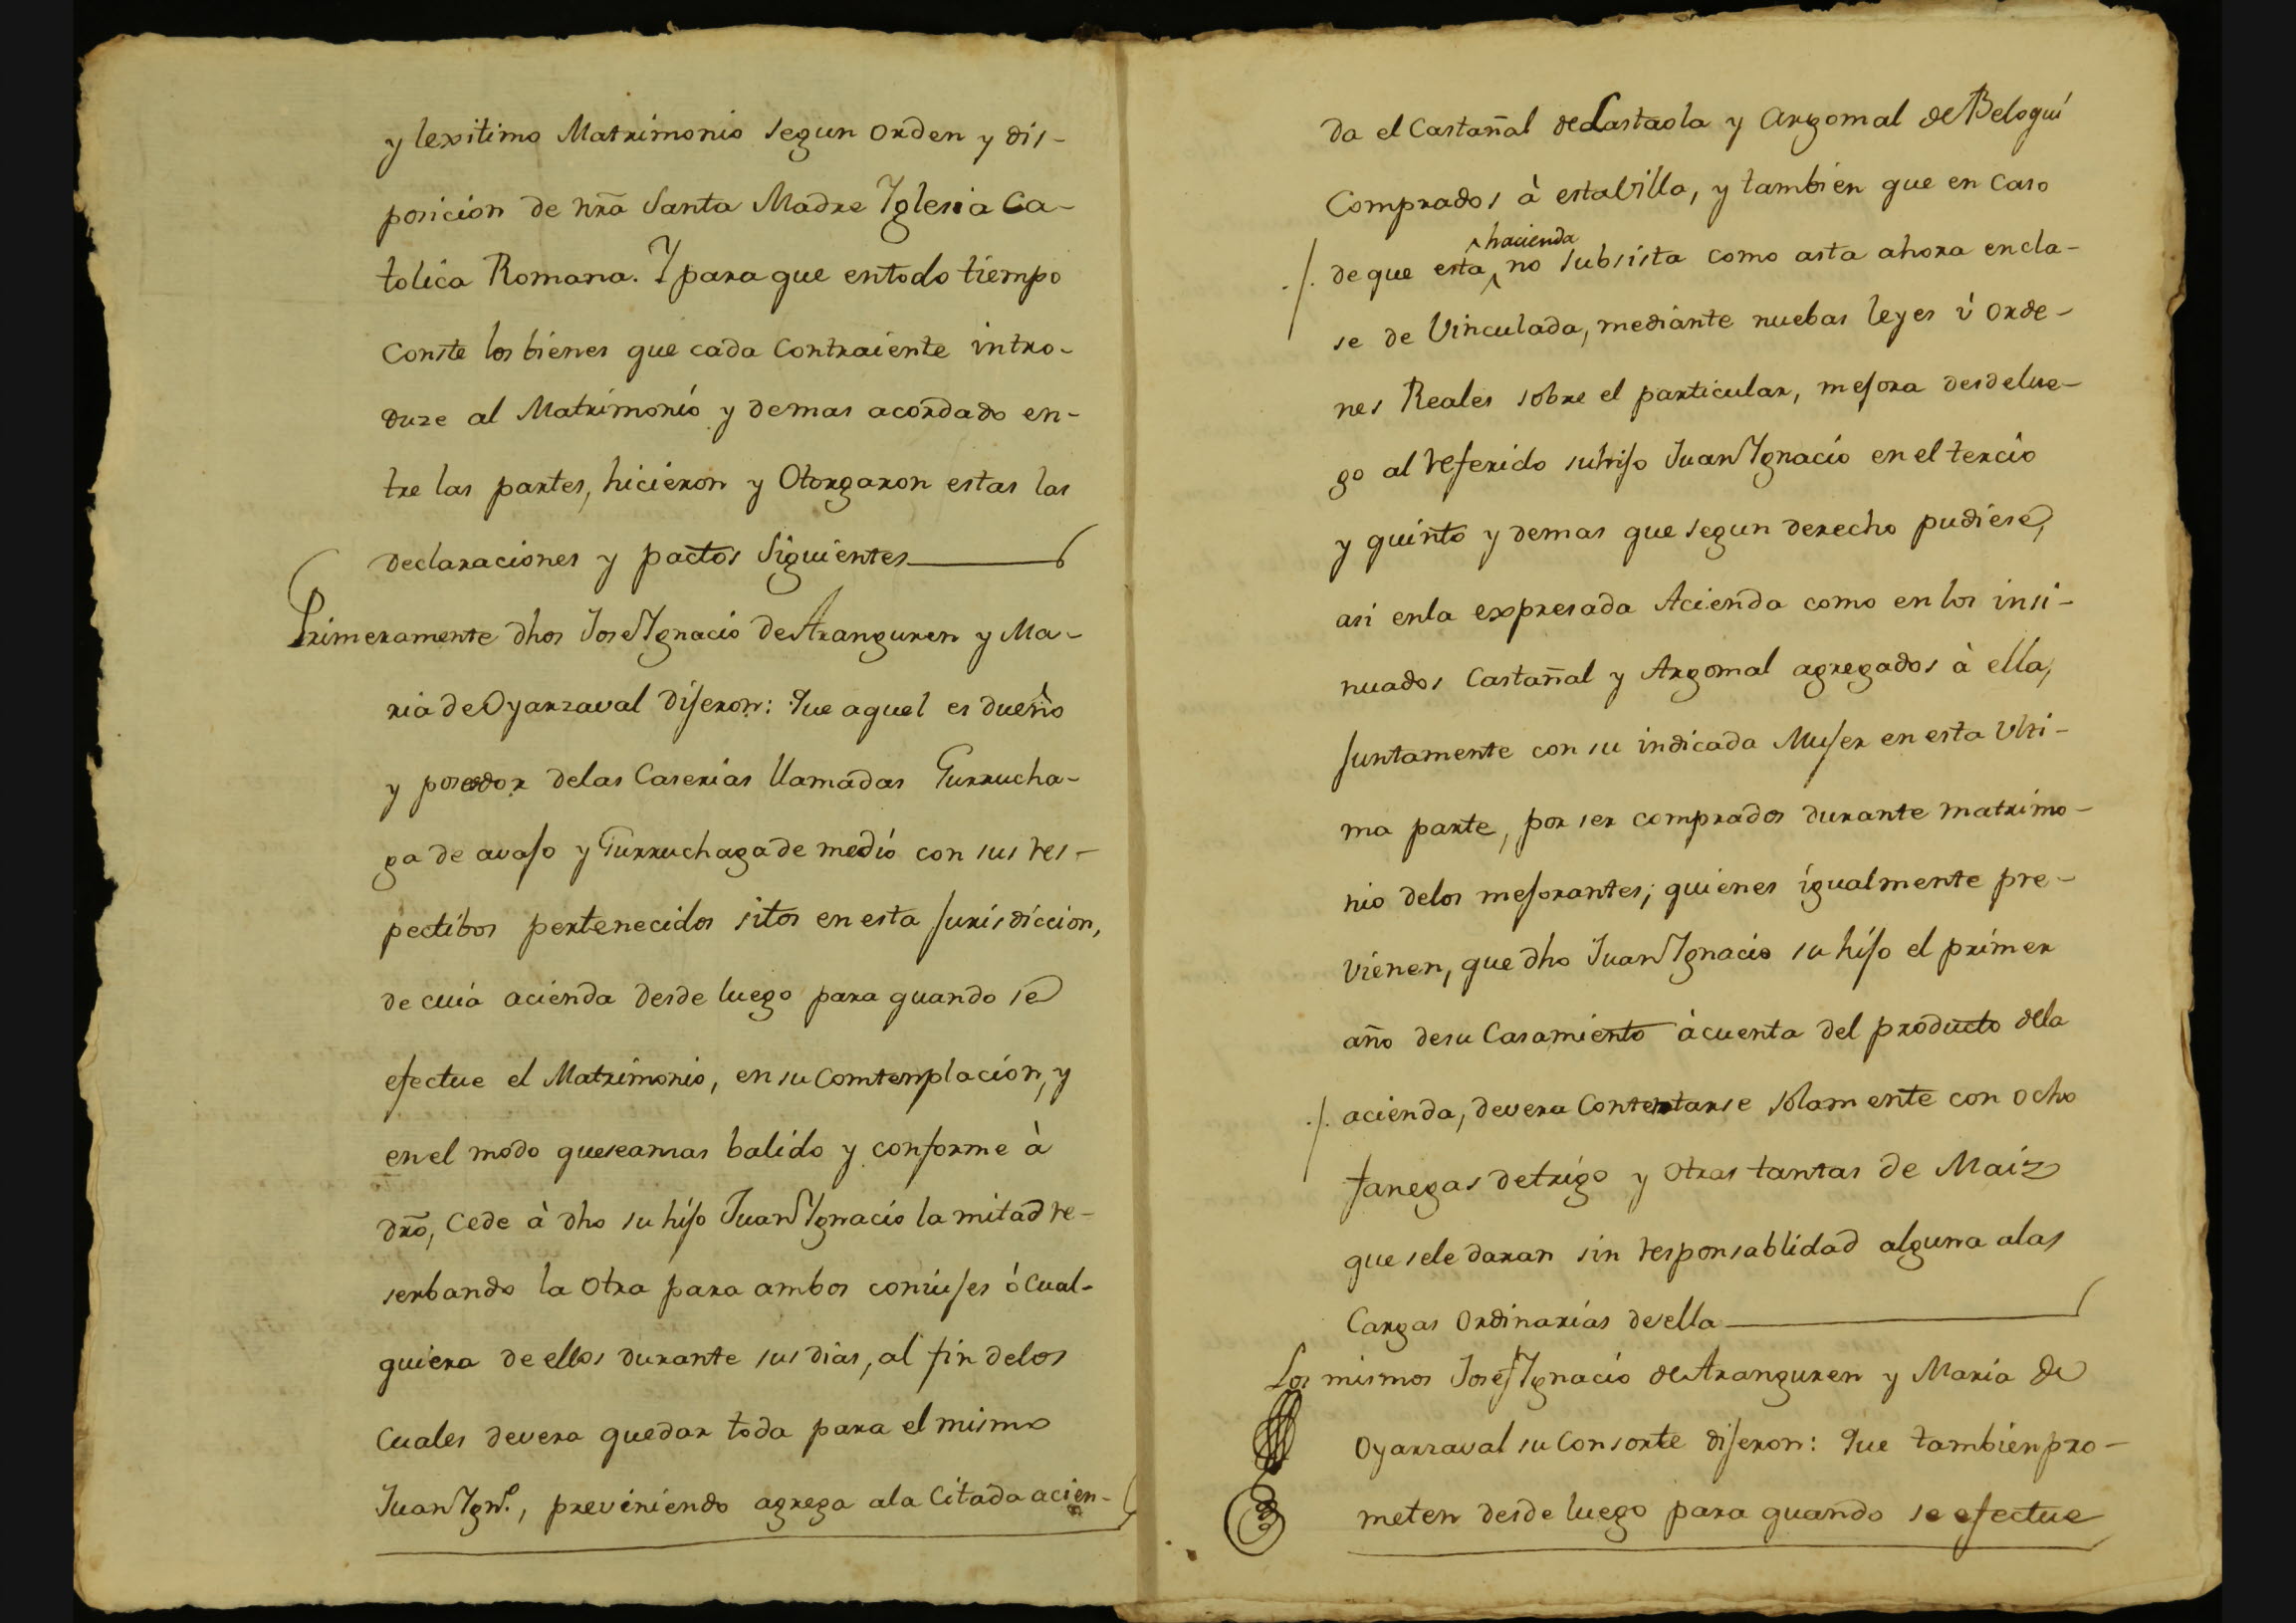 y lexitimo Matrimonio segun orden y dis-
posicion de nr̃a Santa Madre Yglesia Ca-
tolica Romana. Y para que entodo tiempo
Conste los bienes que cada Contraiente intro-
duze al Matrimonio y demas acordado en-
tre las partes, hicieron y Otorgaron estas las
declaraciones y pactos Siguientes
Primeramente dhos Jose Ygnacio de Aranguren y Ma-
ria de Oyarzaval dijeron: Que aquel es dueño
y poseedor delas Caserias llamadas Gurrucha-
ga de avajo y Gurruchaga de medio con sus res-
pectibos pertenecidos sitos en esta jurisdiccion,
de cuia acienda desde luego para quando se
efectue el Matrimonio, en su Comtemplacion, y
en el modo queseamas balido y conforme à
dr̃o, Cede à dho su hijo Juan Ygnacio la mitad re-
serbando la otra para ambos coniujes ò Cual-
quiera de ellos durante sus dias, al fin delos
Cuales devera quedar toda para el mismo
Juan Ygn.º, previniendo agrega ala Citada acien-
da el Castañal de Lastaola y Argomal de Beloqui
Comprados à estaVilla, y tambien que en Caso
de que esta hacienda no subsista como asta ahora encla-
se de Vinculada, mediante nuebas leyes ù orde-
nes Reales sobre el particular, mejora desdelue-
go al referido suhijo Juan Ygnacio en el tercio
y quinto y demas que segun derecho pudiese,
asi enla expresada Acienda como en los insi-
nuados Castañal y Argomal agregados à ella,
juntamente con su indicada Mujer en esta Ulti-
ma parte, por ser comprados durante matrimo-
nio delos mejorantes; quienes igualmente pre-
vienen, que dho Juan Ygnacio su hijo el primer
año desu Casamiento àcuenta del producto dela
acienda, devera Contentarse solamente con ocho
fanegas detrigo y otras tantas de Maiz
que sele daran sin responsablidad alguna alas
Cargas Ordinarias deella
Los mismos Josef Ygnacio de Aranguren y Maria de
Oyarzaval su Consorte dijeron: Que tambien pro-
meten desde luego para quando se efectue